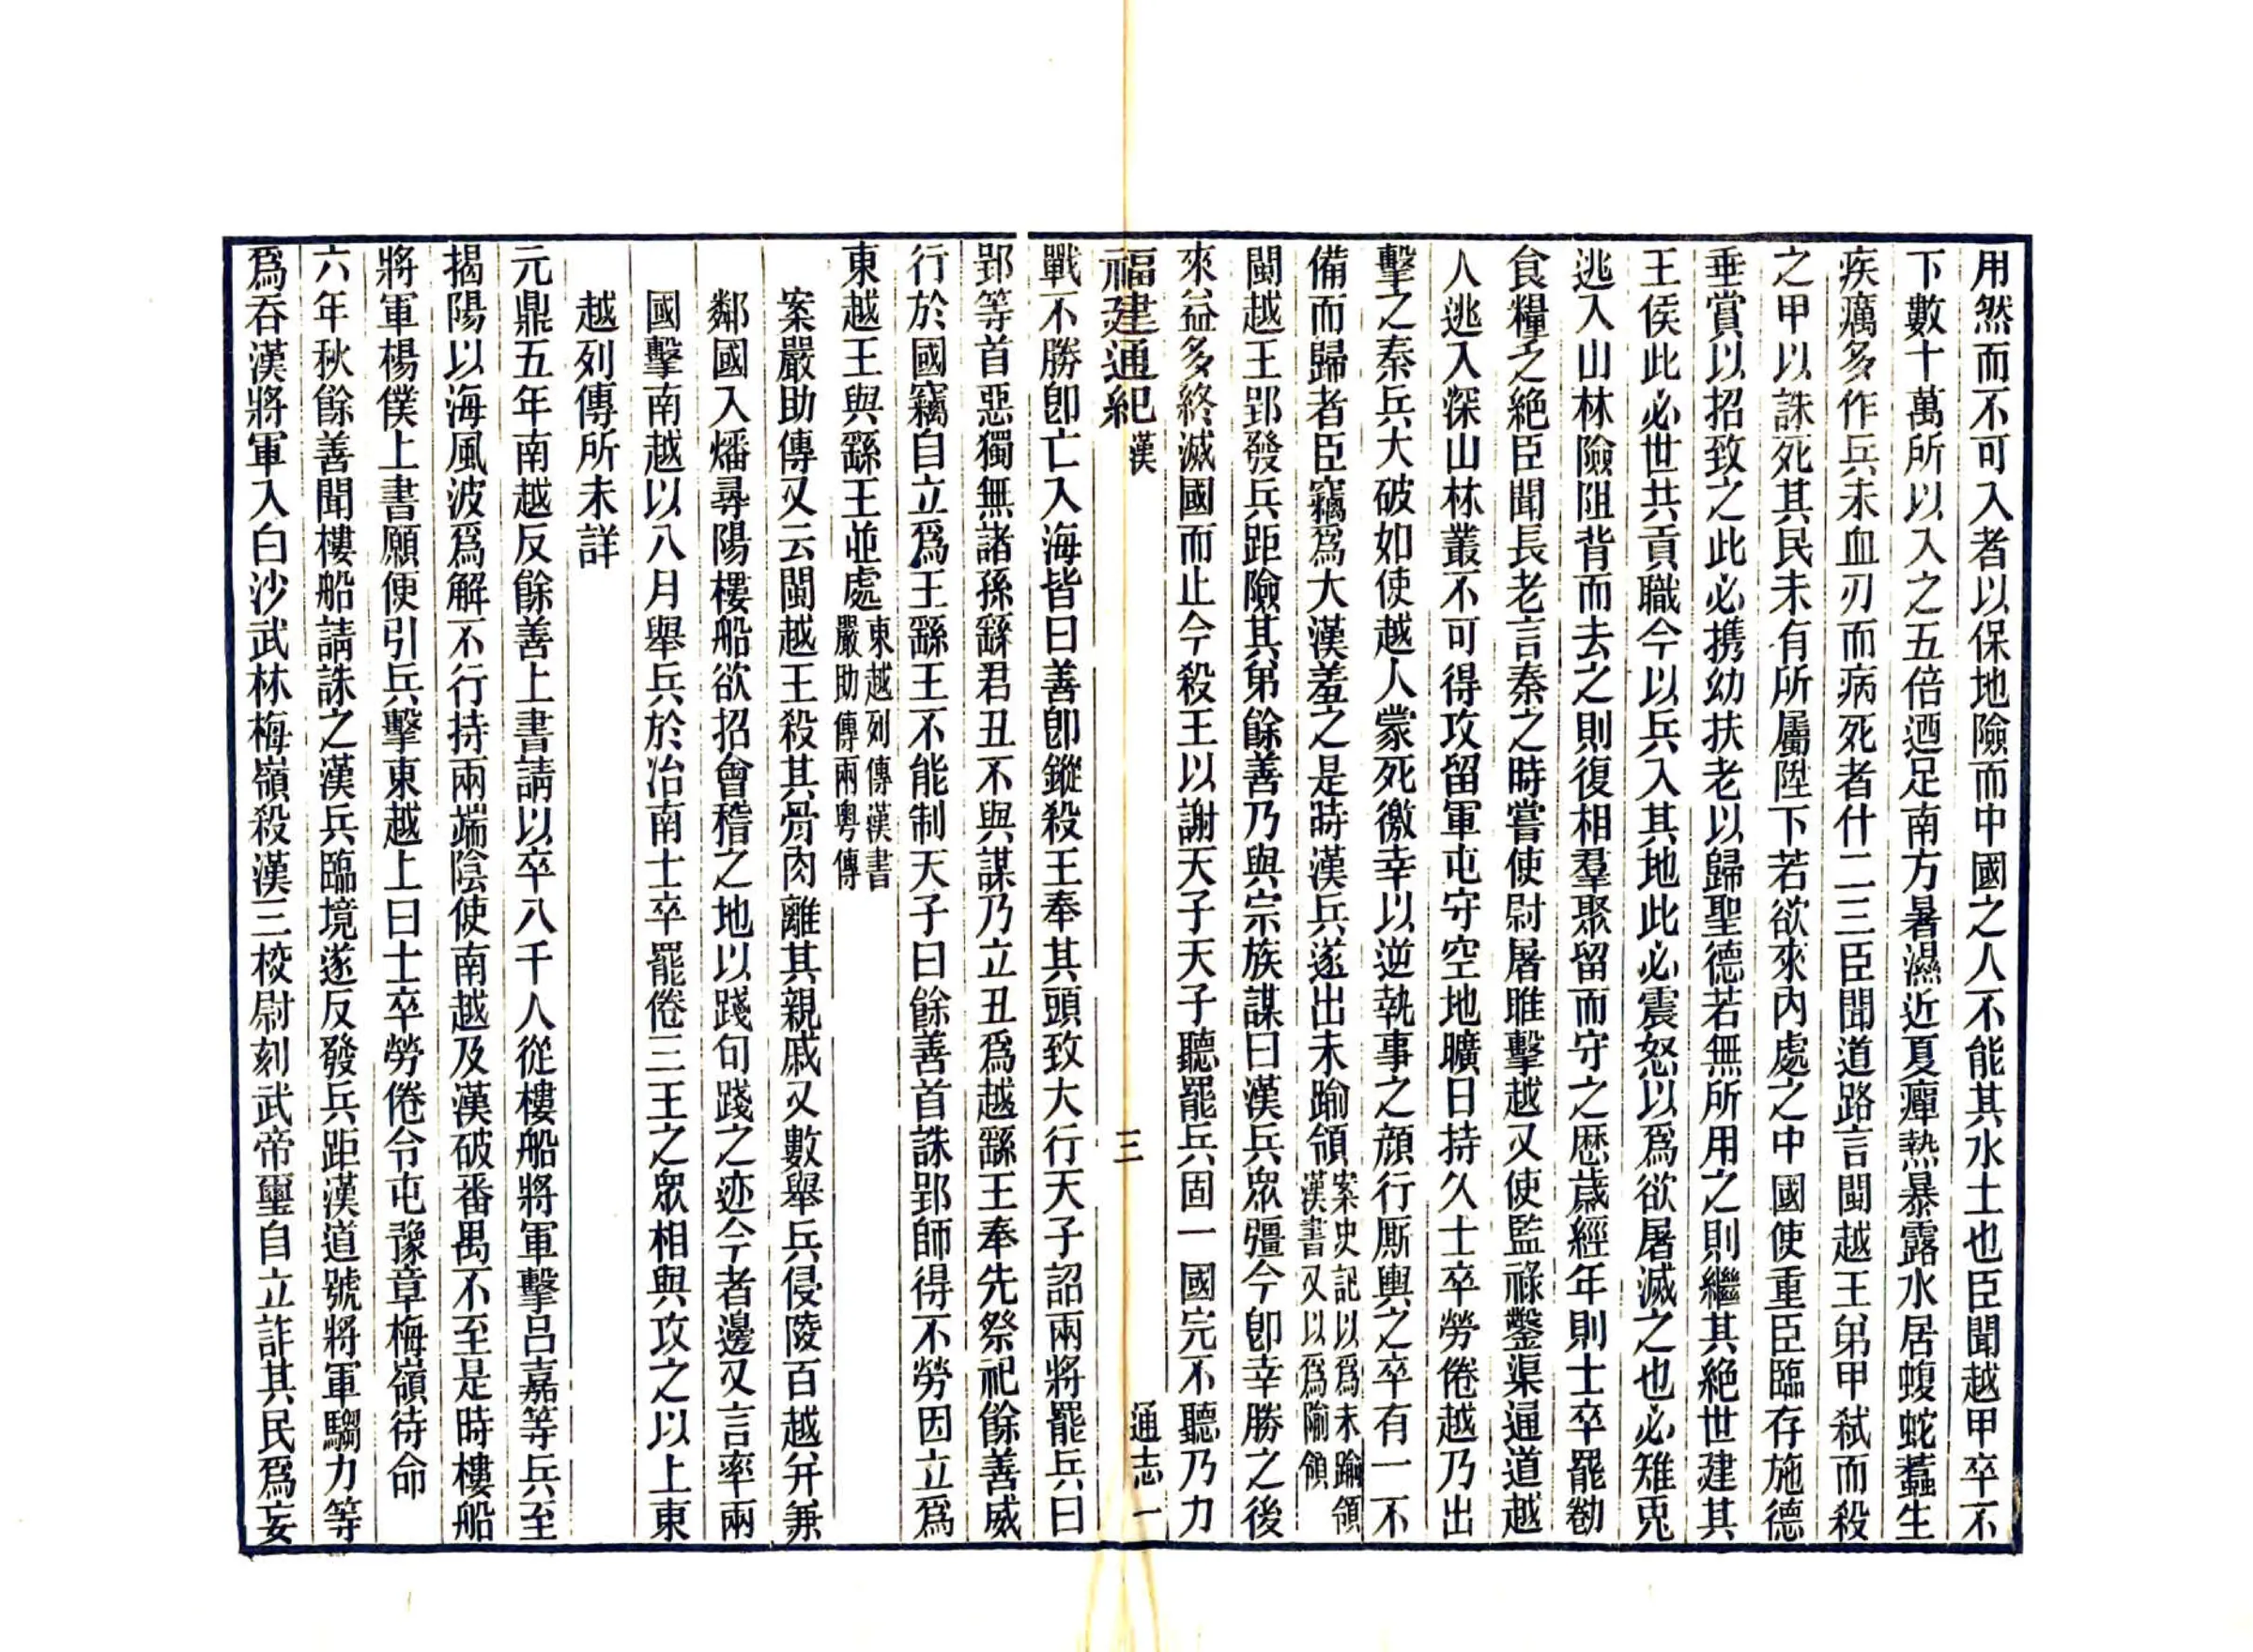 用然而不可入者以保地險而中國之人不能其水土也臣聞越甲卒不
下數十萬所以入之五倍迺足南方暑濕近夏癉熱暴露水居蝮蛇蠚生
疾癘多作兵未血刃而病死者什二三臣聞道路言閩越王弟甲弒而殺
之甲以誅死其民未有所屬陛下若欲來內處之中國使重臣臨存施德
垂賞以招致之此必携幼扶老以歸聖德若無所用之則繼其絶世建其
王侯此必世共貢職今以兵入其地此必震怒以爲欲屠滅之也必雉兎
逃入山林險阻背而去之則復相羣聚留而守之歴歲經年則士卒罷勌
食糧乏絶臣聞長老言秦之時嘗使尉屠睢擊越又使監祿鑿渠通道越
人逃入深山林叢不可得攻留軍屯守空地曠日持久士卒勞倦越乃出
擊之秦兵大破如使越人蒙死徼幸以逆執事之顔行厮輿之卒有一不
備而歸者臣竊爲大漢羞之是時漢兵遂出未踰領案史記以爲未踰領漢書又以爲隃領
閩越王郢發兵距險其弟餘善乃與宗族謀曰漢兵眾彊今卽幸勝之後
來益多終滅國而止今殺王以謝天子天子聽罷兵固一國完不聽乃力
福建通紀 漢 三 通志一
戰不勝卽亡入海皆曰善卽鏦殺王奉其頭致大行天子詔兩將罷兵曰
郢等首惡獨無諸孫繇君丑不與謀乃立丑爲越繇王奉先祭祀餘善威
行於國竊自立爲王繇王不能制天子曰餘善首誅郢師得不勞因立爲
東越王與繇王並處東越列傳漢書嚴助傳兩粵傳
案嚴助傳又云閩越王殺其骨肉離其親戚又數舉兵侵陵百越幷兼
鄰國入燔尋陽樓船欲招會稽之地以踐句踐之迹今者邊又言率兩
國擊南越以八月舉兵於冶南士卒罷倦三王之眾相與攻之以上東
越列傳所未詳
元鼎五年南越反餘善上書請以卒八千人從樓船將軍擊呂嘉等兵至
揭陽以海風波爲解不行持兩端陰使南越及漢破番禺不至是時樓船
將軍楊僕上書願便引兵擊東越上曰士卒勞倦令屯豫章梅嶺待命
六年秋餘善聞樓船請誅之漢兵臨境遂反發兵距漢道號將軍騶力等
爲吞漢將軍入白沙武林梅嶺殺漢三校尉刻武帝璽自立詐其民爲妄